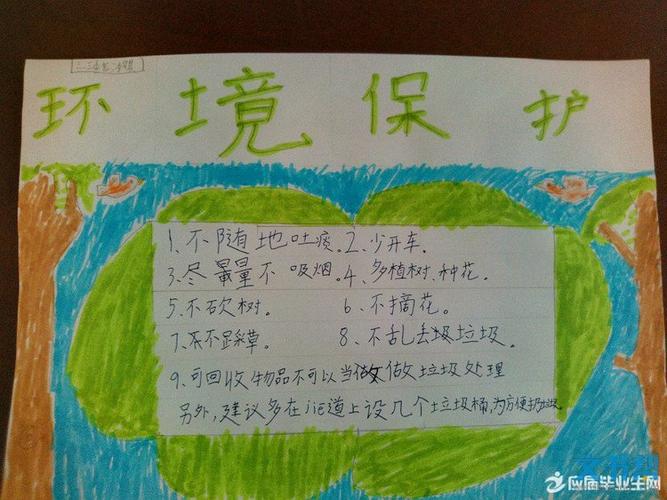 环境保护
1、不随地吐痰。2、少开车。
3、尽量不吸烟。4、多植树、种花。
5、不砍树。 6、不摘花。
7、不踩草。 8、不乱丢圾垃圾。
9、可回收物品不可以当做做垃圾处理
另外,建议多在jie道上设几个垃圾桶,为方便扔垃圾
应届毕业生网